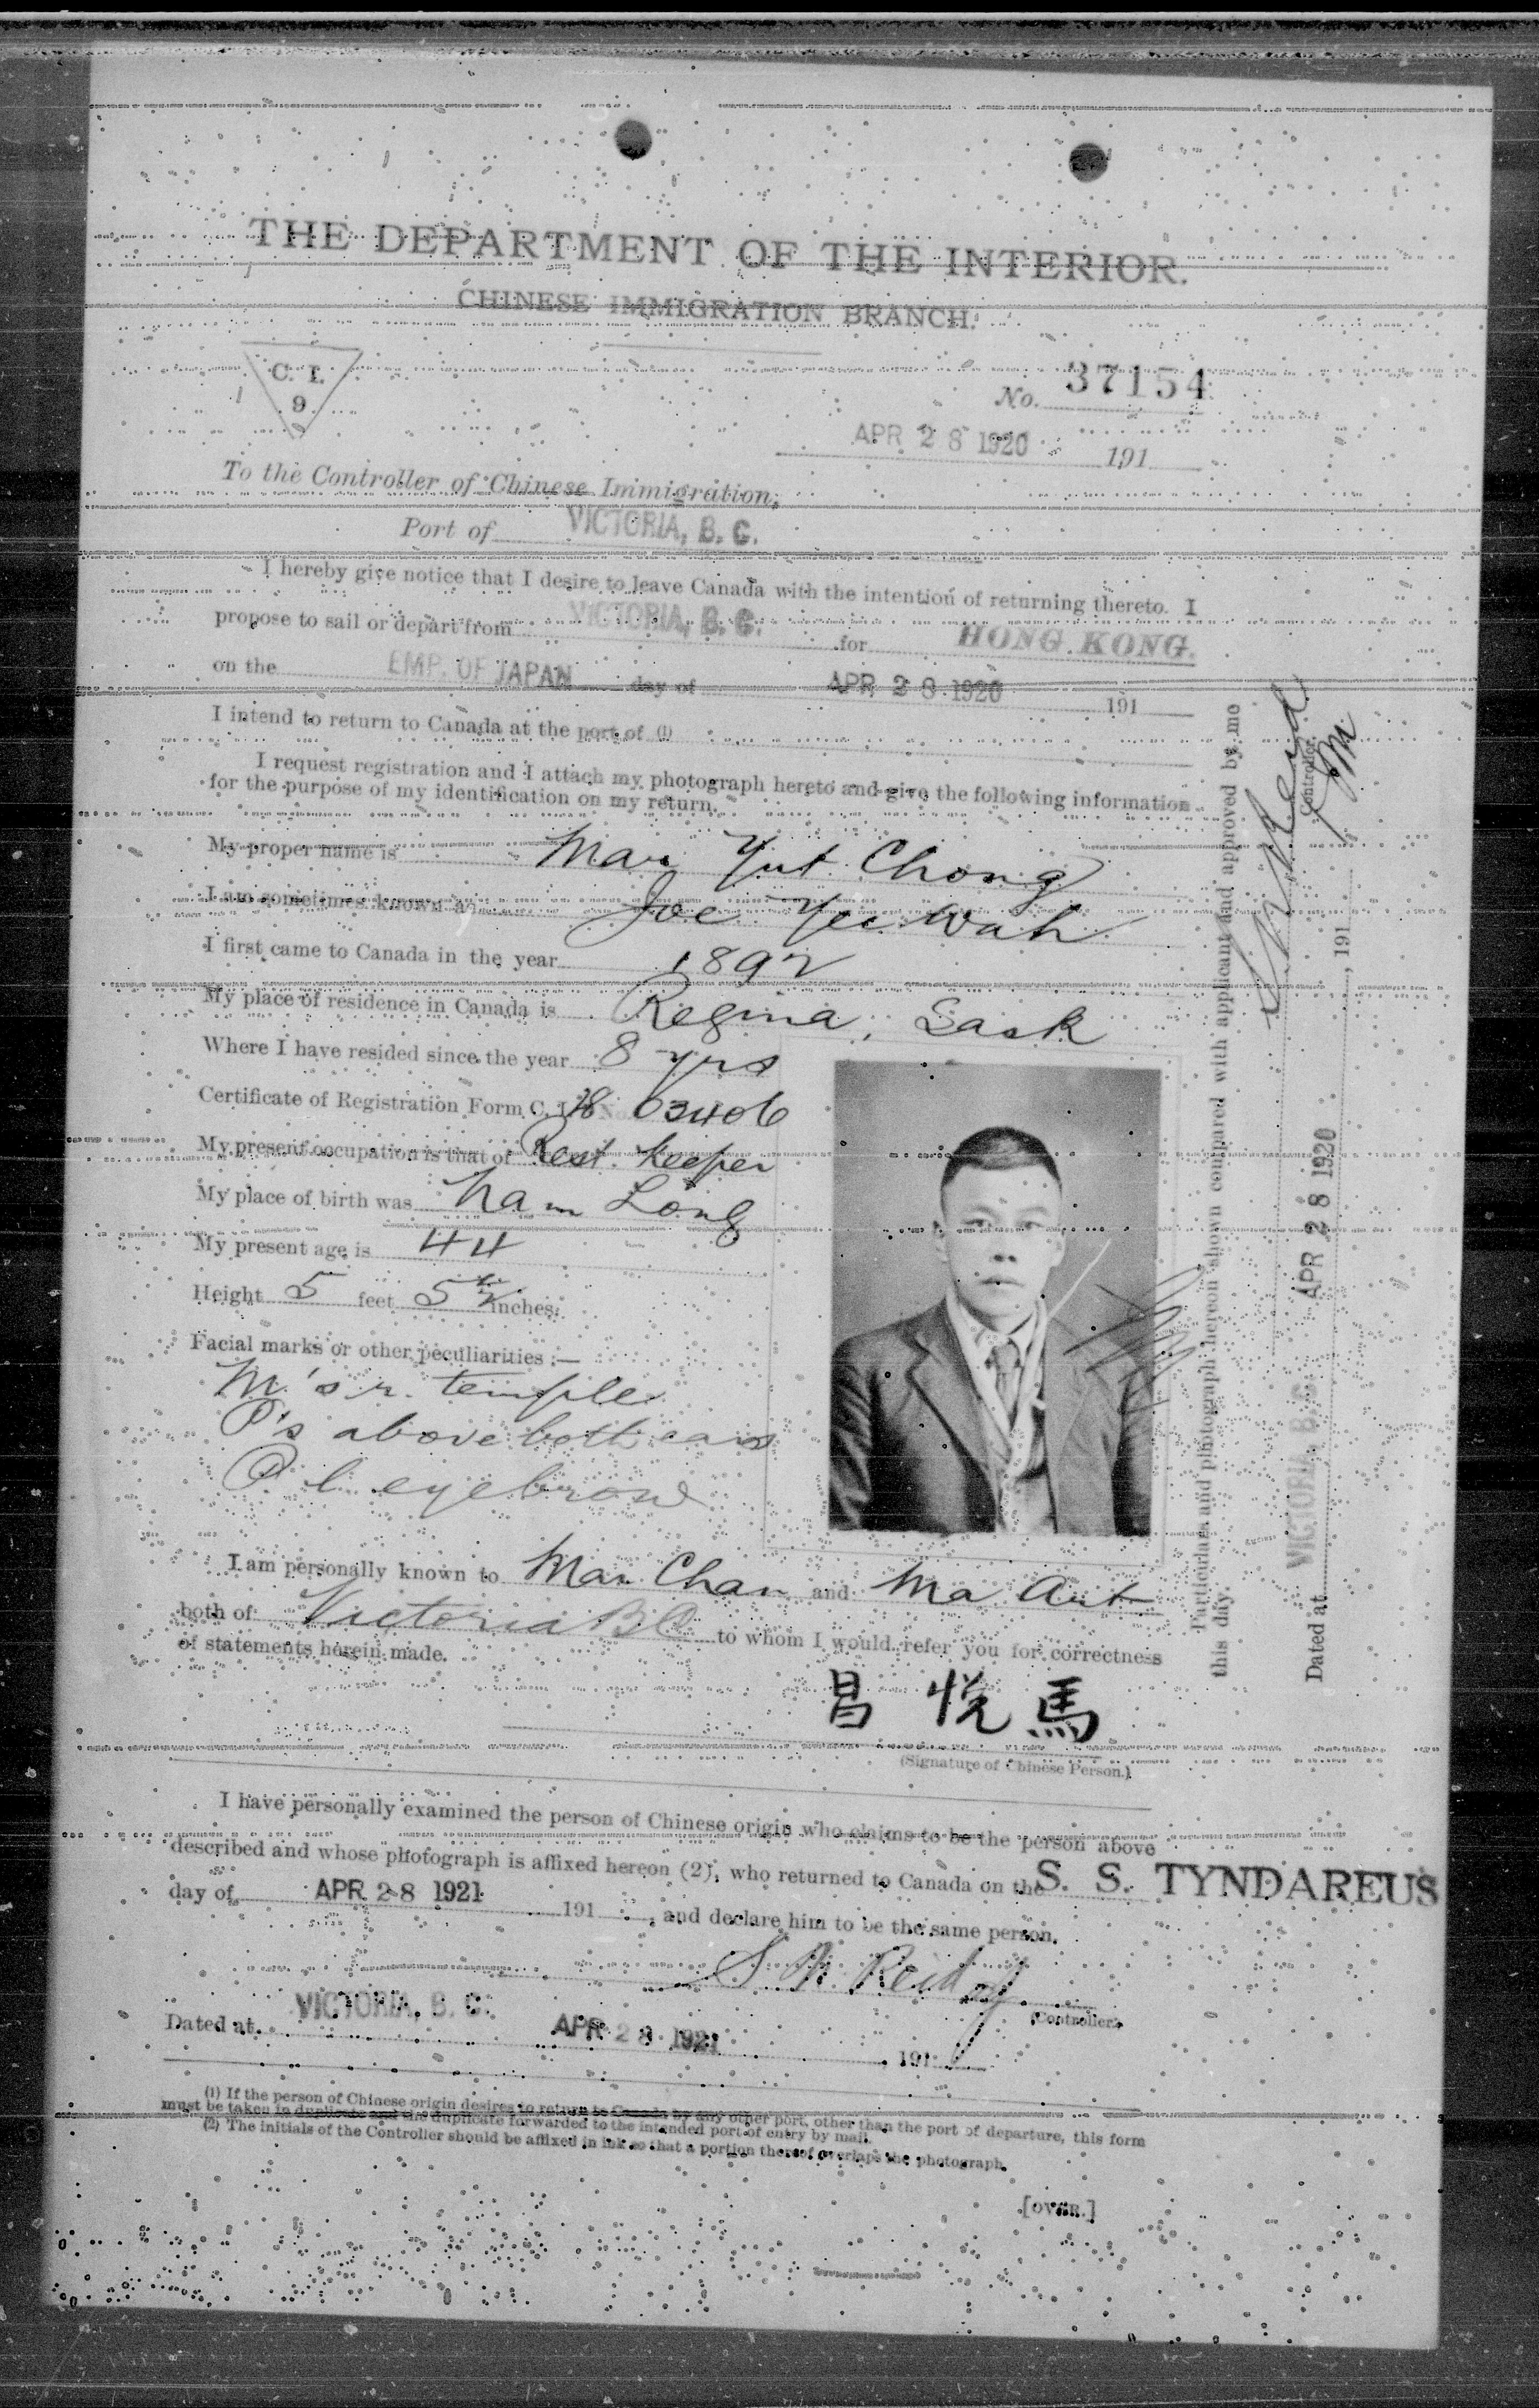 THE DEPARTMENT OF THE INTERIOR.
CHINESE IMMIGRATION BRANCH.
C. I.
9
No. 37154
APR 28 1920 191
To the Controller of Chinese Immigration,
Port of VICTORIA, B. C.
I hereby give notice that I desire to leave Canada with the intention of returning thereto. I
propose to sail or depart from VICTORIA, B. C. for HONG KONG.
on the EMP. OF JAPAN day of APR 28 1920 191
I intend to return to Canada at the port of (1)
I request registration and I attach my photograph hereto and give the following information
for the purpose of my identification on my return.
My proper name is Mar Yut Chong
I am sometimes known as Joe Yee Wah
I first came to Canada in the year 1892
My place of residence in Canada is Regina, Sask
Where I have resided since the year 8 yrs
Certificate of Registration Form C. I. 28 No. 03406
My present occupation is that of Rest. Keeper
My place of birth was Nam Long
My present age is 44
Height 5 feet 5 ½ inches.
Facial marks or other peculiarities :—
M's r. temple
P's above both ears
P l eyebrow
I am personally known to Mar Chan and Ma Aut
both of Victoria BC to whom I would refer you for correctness
of statements herein made.
昌 悅 馬
(Signature of Chinese Person.)
I have personally examined the person of Chinese origin who claims to be the person above
described and whose photograph is affixed hereon (2), who returned to Canada on the S. S. TYNDAREUS
day of APR 28 1921 191 , and declare him to be the same person.
S N Reid
Controller.
Dated at VICTORIA, B. C. APR 28 1921 , 191
(1) If the person of Chinese origin desires to return to Canada by any other port, other than the port of departure, this form
must be taken in duplicate and the duplicate forwarded to the intended port of entry by mail.
(2) The initials of the Controller should be affixed in ink so that a portion thereof overlaps the photograph.
[OVER.]
Particulars and photograph hereon shown compared with applicant and approved by me
this day.
Reid
Controller.
Dated at VICTORIA B. C. APR 28 1920 , 191